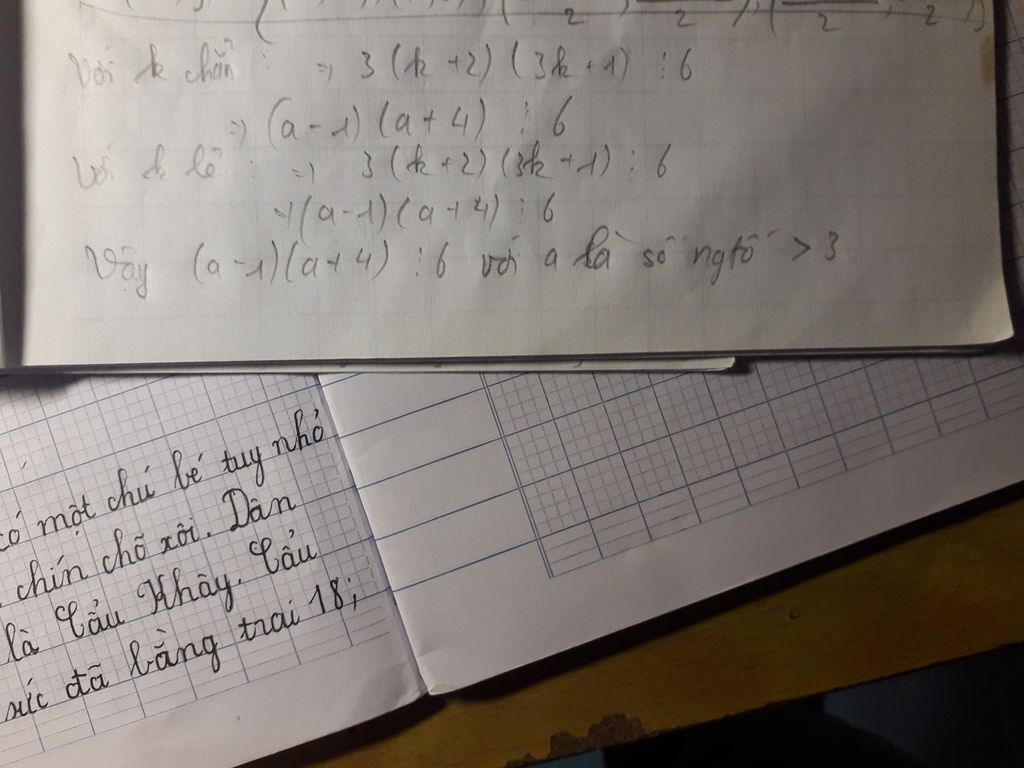 Với k chẵn : => 3(k+2)(3k+1) ⋮ 6
=> (a-1)(a+4) ⋮ 6
Với k lẻ : => 3(k+2)(3k+1) ⋮ 6
=> (a-1)(a+4) ⋮ 6
Vậy (a-1)(a+4) ⋮ 6 với a là số ngtố > 3
có một chú bé tuy nhỏ
chín chõ xôi. Dân
là Cẩu Khây. Cẩu
sức đã bằng trai 18;